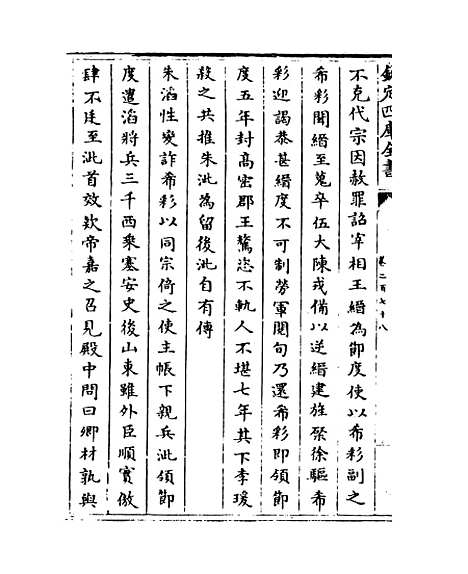 欽定四庫全書
卷二百七十八
不克代宗因赦罪詔宰相王縉為節度使以希彩副之
希彩聞縉至蒐卒伍大陳戎備以逆縉建旌棨徐驅希
彩迎謁恭甚縉度不可制勞軍閱旬乃還希彩即領節
度五年封高密郡王驁恣不軌人不堪七年其下李瑗
殺之共推朱泚為留後泚自有傳
朱滔性變詐希彩以同宗倚之使主帳下親兵泚領節
度遣滔將兵三千西乘塞安史後山東雖外臣順實傲
肆不廷至泚首效欵帝嘉之召見殿中問曰卿材孰與